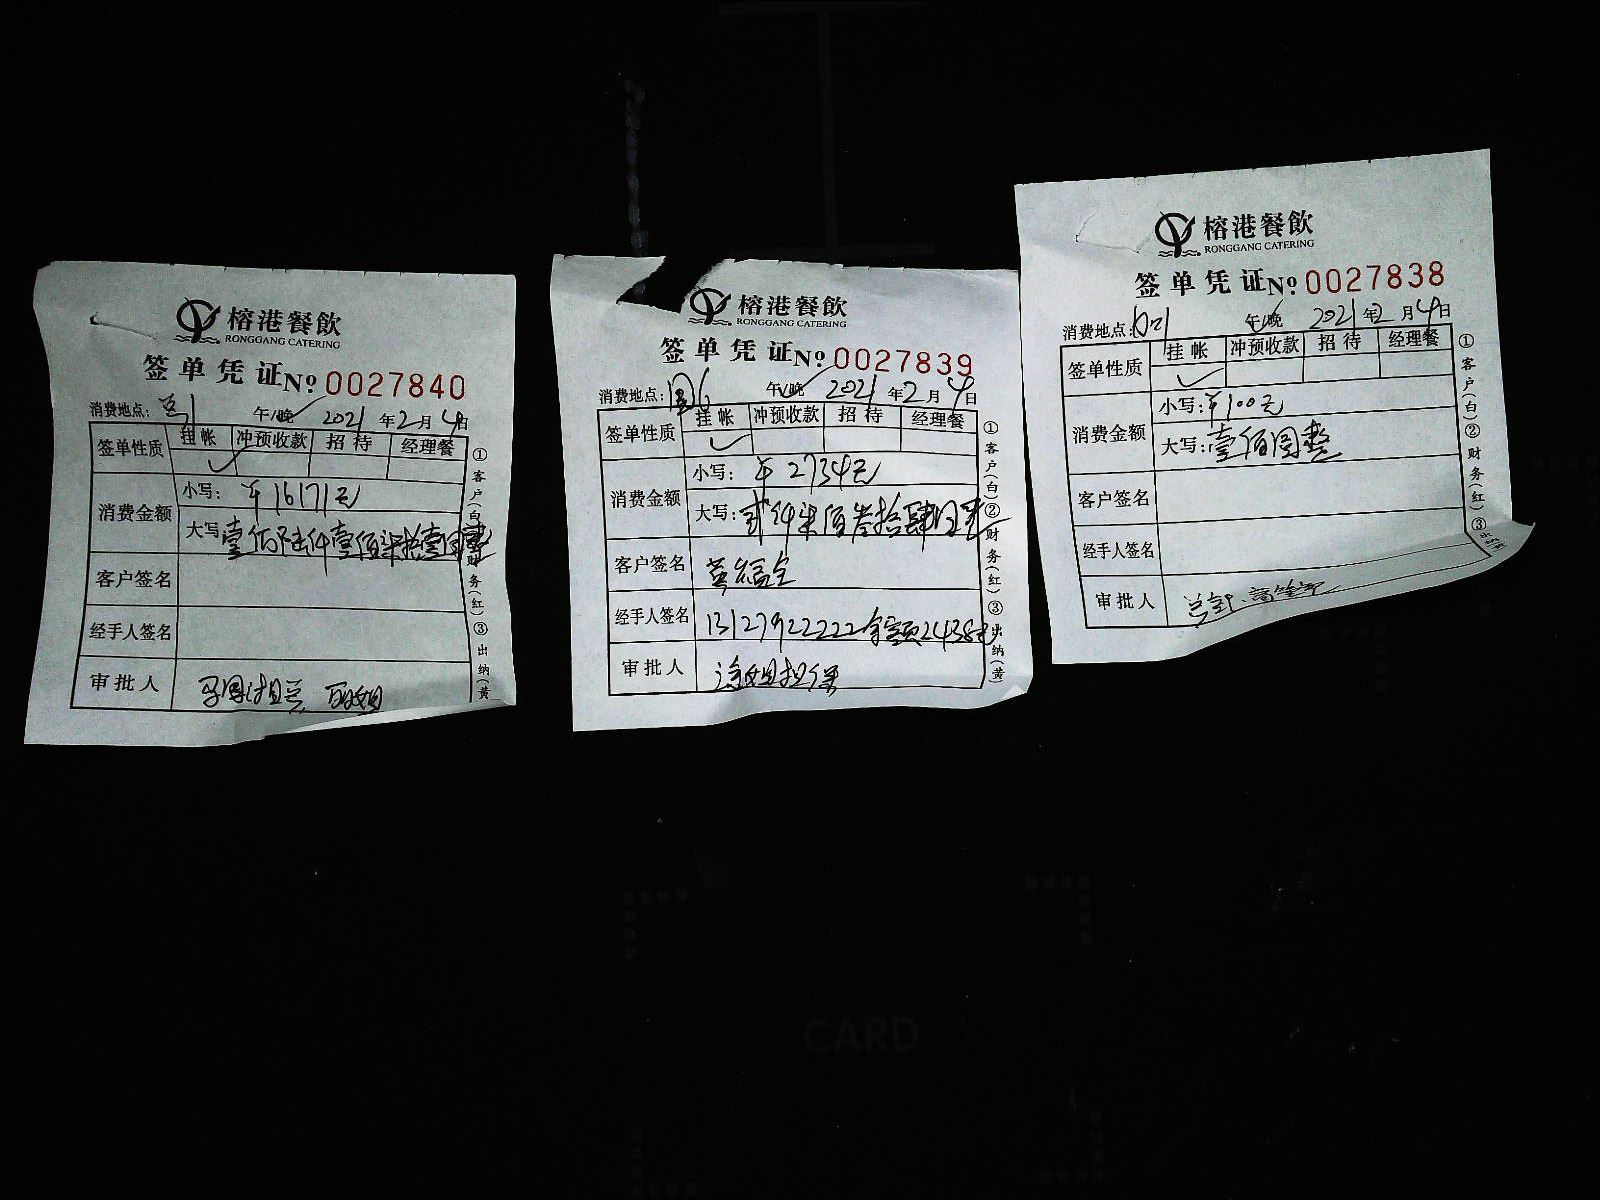 榕港餐飲
RONGGANG CATERING
签单凭证No 0027840
消费地点: 午/晚 2021年2月4日
签单性质 挂帐 冲预收款 招待 经理餐
✓
消费金额
小写: ¥16171元
大写 壹陆仟壹佰柒拾壹圆整
客户签名
经手人签名
审批人
①客户(白)②财务(红)③出纳(黄
榕港餐飲
RONGGANG CATERING
签单凭证No 0027839
消费地点: 午/晚 2021年2月4日
签单性质 挂帐 冲预收款 招待 经理餐
✓
消费金额
小写: ¥2734元
大写: 贰仟柒佰叁拾肆圆整
客户签名
经手人签名 13127922222余额2438元
审批人 涂姐担保
①客户(白)②财务(红)③出纳(黄)
榕港餐飲
RONGGANG CATERING
签单凭证No 0027838
消费地点: 午/晚 2021年2月4日
签单性质 挂帐 冲预收款 招待 经理餐
✓
消费金额
小写: ¥100元
大写: 壹佰圆整
客户签名
经手人签名
审批人
①客户(白)②财务(红)③
CARD